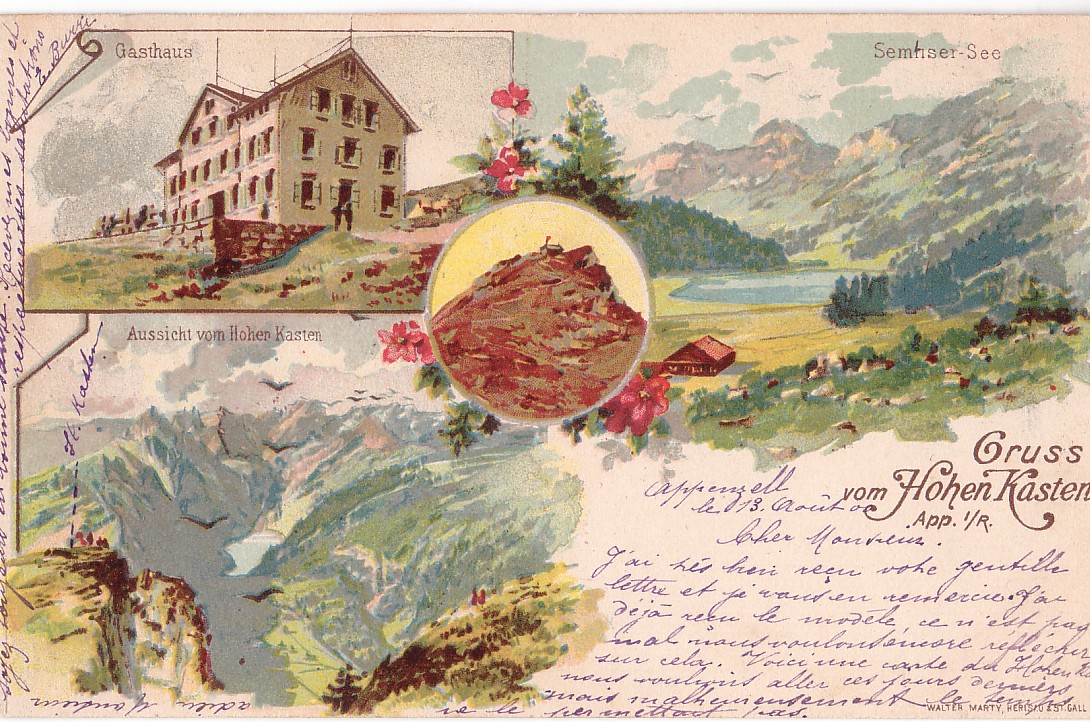 Gasthaus
Semtiser-See
Aussicht vom Hohen Kasten
H. Kasten
Gruss
vom Hohen Kasten
App. I/R.
Appenzell
le 13. Août 00
Cher Monsieur.
J'ai très bien reçu votre gentille
lettre et je vous en remercie. J'ai
déjà reçu le modèle, ce n'est pas
mal nous voulons encore réfléchir
sur cela. Voici une carte du Hohen K.
nous voulions aller ces jours derniers
mais malheureusement le
ne le permettait pas.
adieu Monsieur
Soyez
respectueuses salutations
E.
WALTER MARTY, HERISAU & ST. GALL